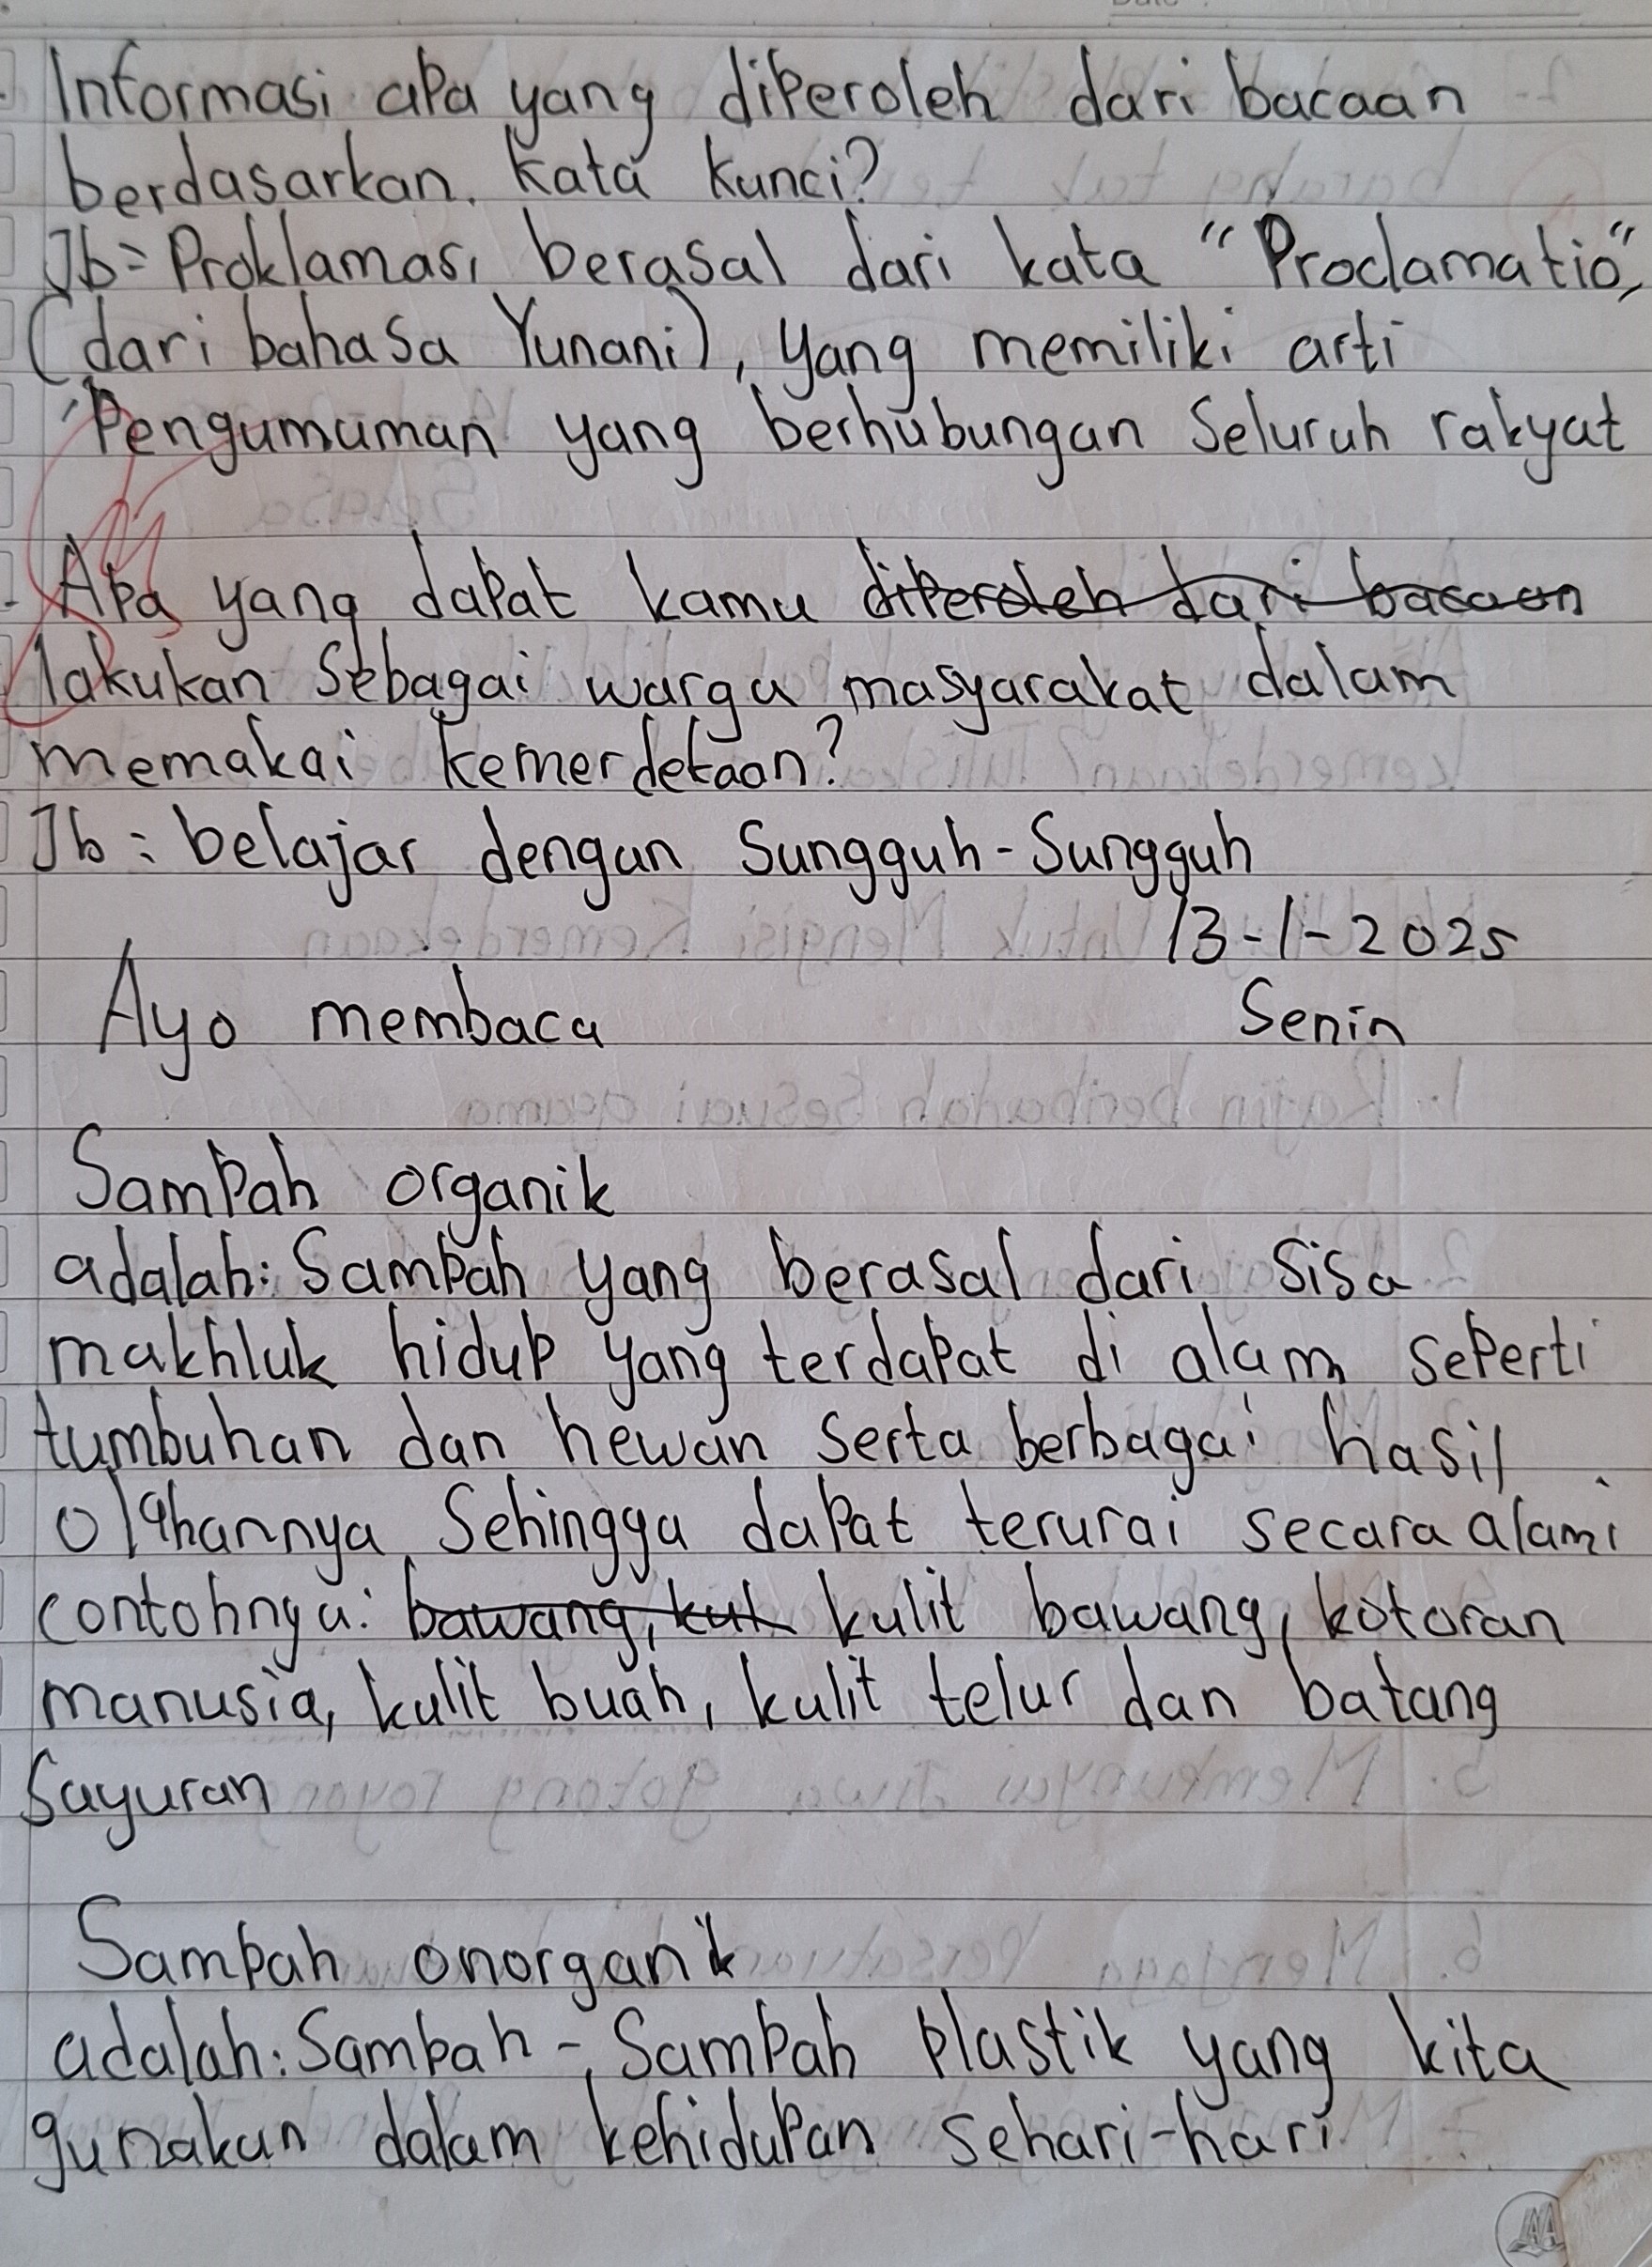 Informasi apa yang diperoleh dari bacaan
berdasarkan. kata kunci?
Jb= Proklamasi berasal dari kata "Proclamatio",
(dari bahasa Yunani), yang memiliki arti
'Pengumuman yang berhubungan Seluruh rakyat
- Apa yang dapat kamu diperoleh dari bacaan
lakukan Sebagai warga masyarakat dalam
memakai kemerdekaan?
Jb : belajar dengan Sungguh-Sungguh
13-1-2025
Ayo membaca Senin
Sampah organik
adalah: Sampah yang berasal dari Sisa
makhluk hidup yang terdapat di alam seperti
tumbuhan dan hewan serta berbagai hasil
olahannya Sehingga dapat terurai secara alami
contohnya: bawang, kul kulit bawang, kotoran
manusia, kulit buah, kulit telur dan batang
Sayuran
Sampah onorganik
adalah: Sampah - Sampah plastik yang kita
gunakan dalam kehidupan sehari-hari